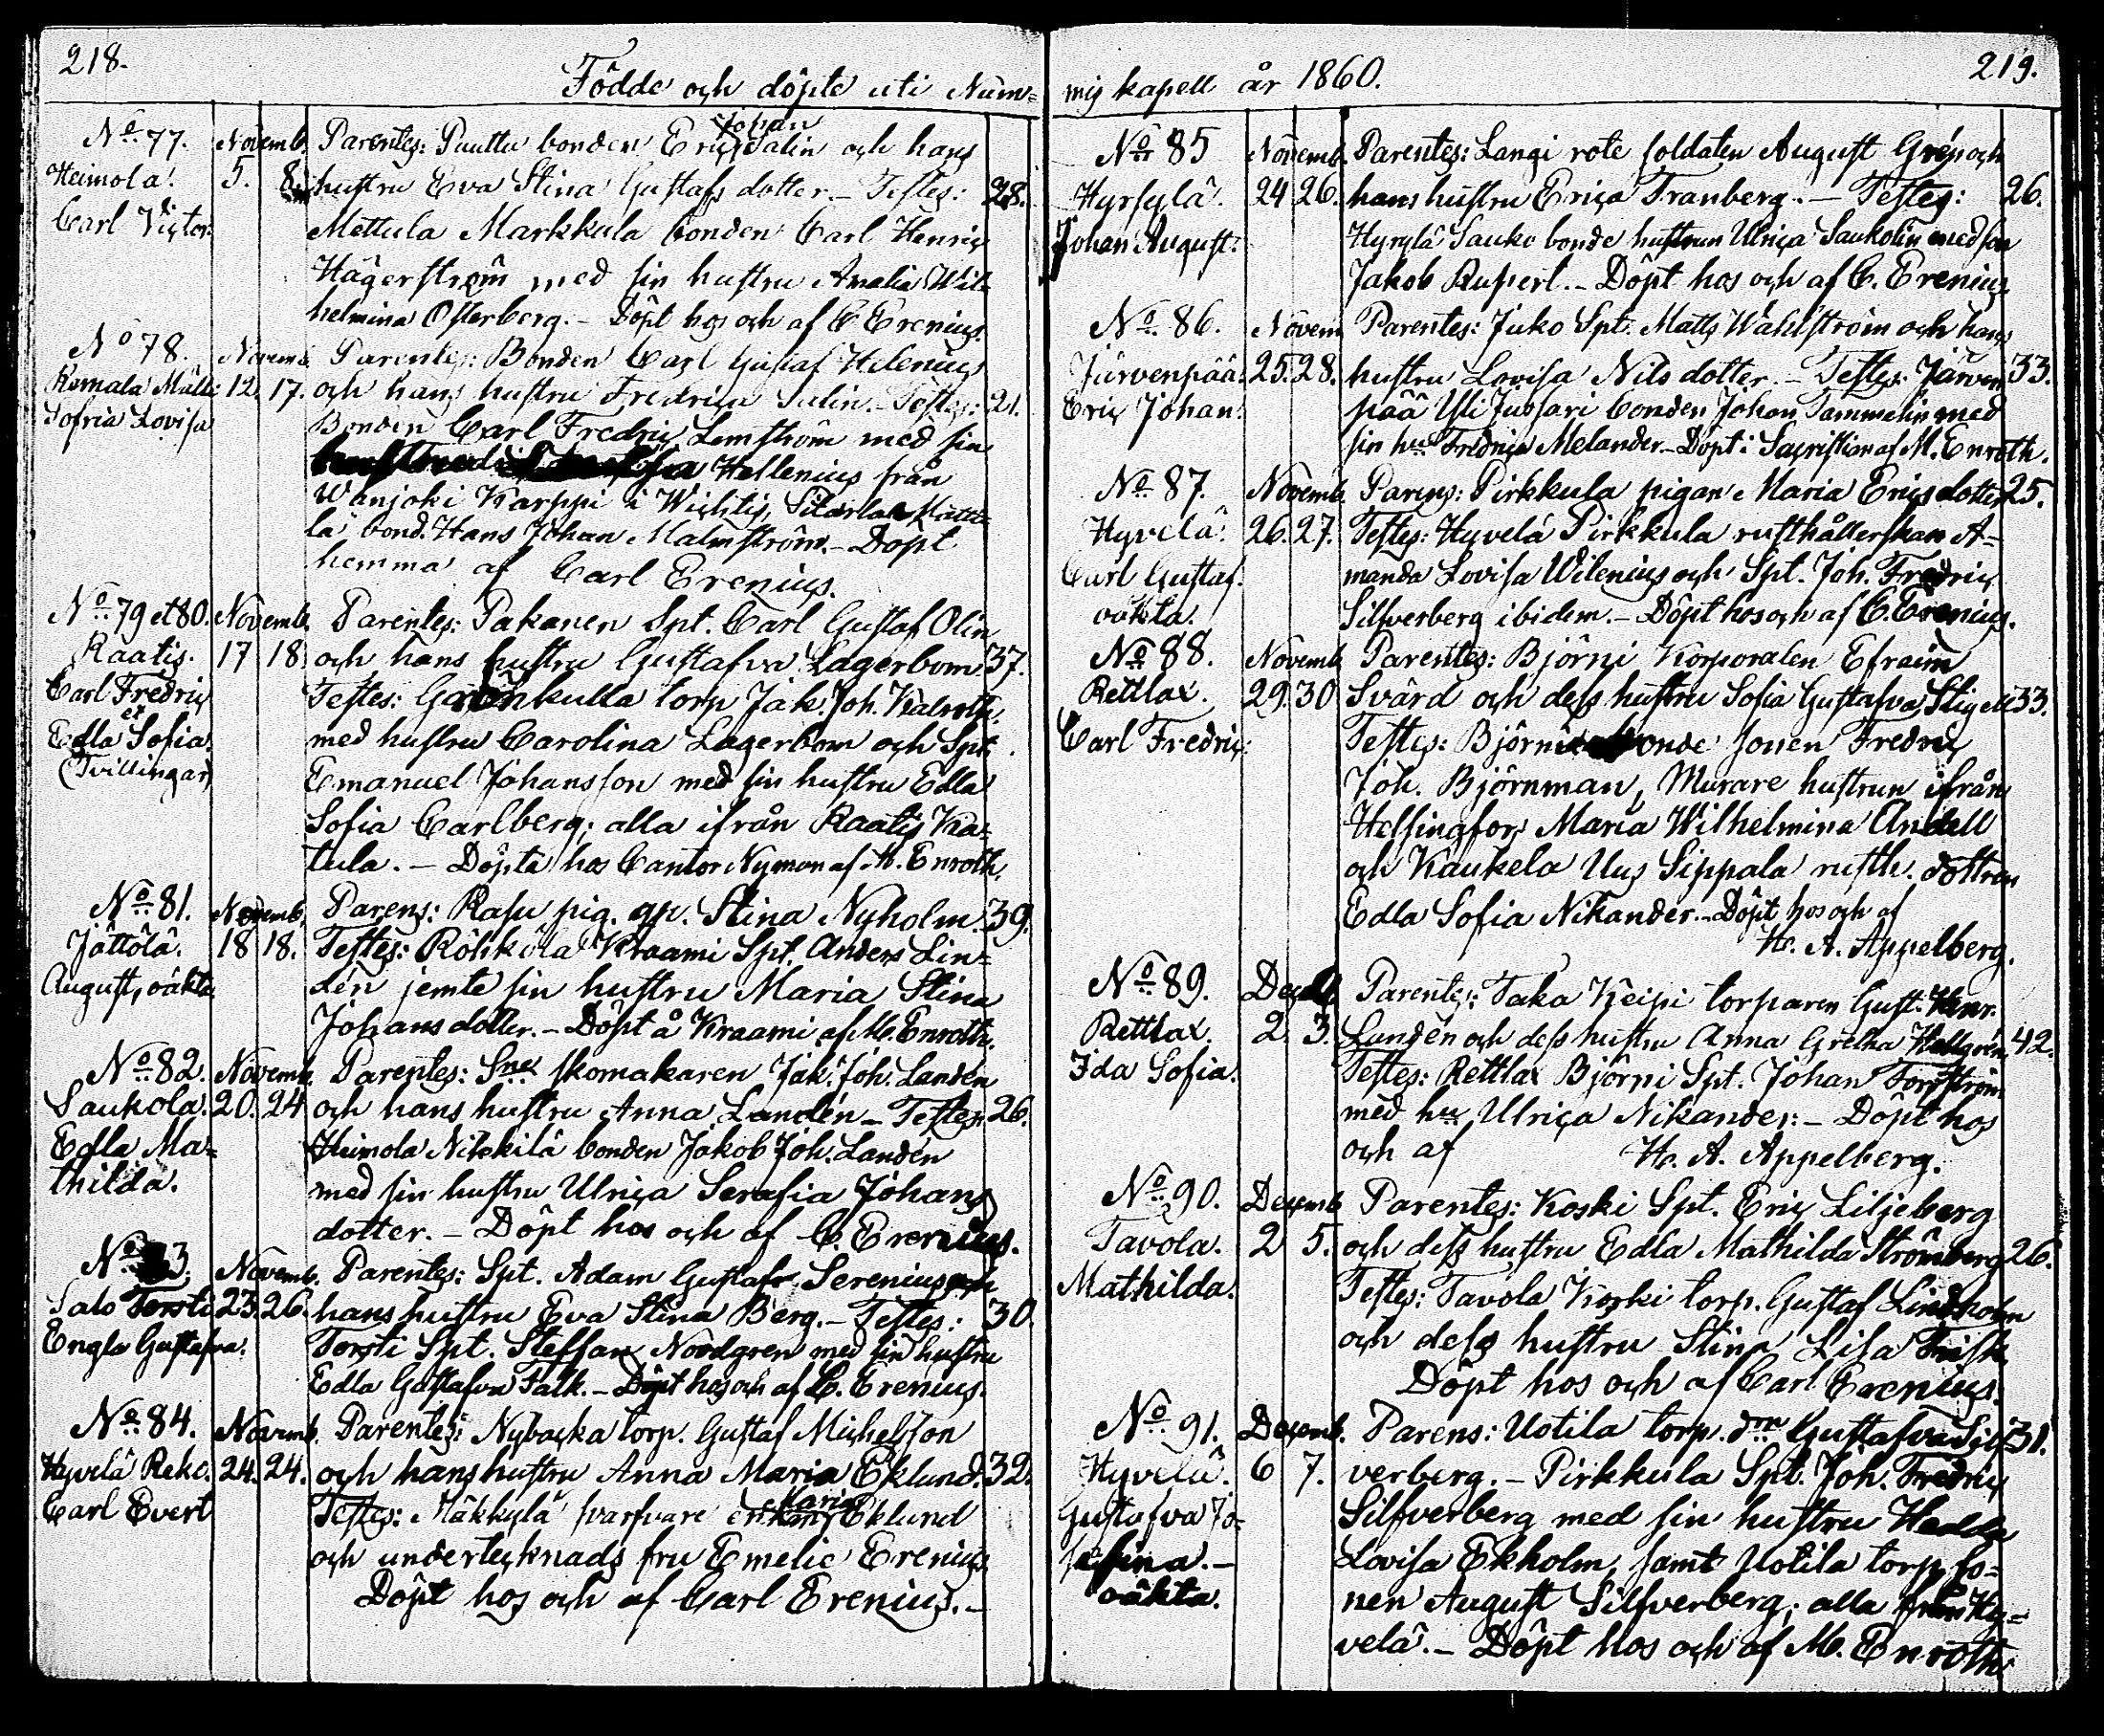 218.
Födde och döpte uti Num=
No. 77. Novemb. Parentes: Puuttu bonden Eric Johan Salin och hans
Heimola. 5. 8. hustru Eva Stina Gustafs dotter. – Testes: 28.
Carl Victor. Mettula Markkula bonden Carl Henric
Hägerström med sin hustru Amalia Wil=
helmina Österberg. – Döpt hos och af C. Erenius.
No 78. Novemb. Parentes: Bonden Carl Gustaf Helenius
Matti 12. 17. och hans hustru Fredrica Salin. – Testes: 21.
Lovisa Bonden Carl Fredric Lemström med sin
Hellenius från
Wanjoki Karppi i Wichtis,
la bond. Hans Johan Malmström. – Döpt
hemma af Carl Erenius.
No. 79 et 80. Novemb. Parentes: Pakanen Spt. Carl Gustaf Olin
Raatis. 17 18 och hans hustru Gustafva Lagerbom. 37.
Carl Fredric Testes: torp Jak. Joh.
et
Edla Sofia. med hustru Carolina Lagerbom och Spt.
(Tvillingar) Emanuel Johansson med sin hustru Edla
Sofia Carlberg; alla ifrån Raatis Ka=
tula. – Döpta hos Cantor Nyman af M. Enroth.
No. 81. Novemb. Parens: Rasu pig. gp. Stina Nyholm. 39.
Jättölä. 18 18. Testes: Röhkölä Kraami Spt. Anders Lin=
August, oäkta dén jemte sin hustru Maria Stina
Johans dotter. – Döpt å Kraami af M. Enroth.
No. 82. Novemb. Parentes: Sne skomakaren Jak. Joh. Landén
Saukola. 20. 24 och hans hustru Anna Landén – Testes: 26.
Edla Ma= Heimola Nikkilä bonden Jakob Joh. Landén
thilda. med sin hustru Ulrica Serafia Johans
dotter. – Döpt hos och af C. Erenius.
No. 83. Novemb. Parentes: Spt. Adam Gustafs. Serenius och
Salo Torsti 23. 26. hans hustru Eva Stina Berg. – Testes: 30
Engla Gustafva. Torsti Spt. Steffan Nordgren med sin hustru
Edla Gustafva Falk. – Döpt hos och af C. Erenius.
No. 84. Novemb. Parentes: Nybacka torp. Gustaf Michelsson
Hyvelä Reko. 24. 24. och hans hustru Anna Maria Eklund. 32.
Carl Evert Testes: Mäkkylä svarfvare enkan Maria Eklund
och undertecknads fru Emelie Erenius.
Döpt hos och af Carl Erenius. –
219.
mis kapell år 1860.
No. 85 Novemb. Parentes: Langi rote soldaten August Grén och
Hyrsylä. 24 26. hans hustru Erica Tranberg. – Testes: 26.
Johan August. Hyrsylä Sauko bonde hustrun Ulrica Saukolin med son
Jakob Rupert. – Döpt hos och af C. Erenius.
No. 86. Novem Parentes: Juko Spt. Matts Wahlström och hans
Järvenpää. 25. 28. hustru Lovisa Nils dotter. – Testes: Järven 33.
Eric Johan. pää Yli Jussari bonden Johan Tammelin med
sin hu Fredrica Melander. – Döpt i Sacristian af M. Enroth.
No. 87. Novemb. Parens: Pirkkula pigan Maria Erics dotter 25.
Hyvelä. 26. 27. Testes: Hyvelä Pirkkula rusthållerskan A=
Carl Gustaf. manda Lovisa Wilenius och Spt. Joh. Fredric
oäkta. Silfverberg ibidem. – Döpt hos och af C. Erenius.
No. 88. Novemb. Parentes: Björni Korporalen Efraim
Rettlax. 29. 30 Svärd och dess hustru Sofia Gustafva Stigell 33.
Carl Fredric. Testes: Björni bonde sonen Fredric
Joh. Björnman, Murare hustrun ifrån
Helsingfors Maria Wilhelmina Andell
och Kaukela Uus Sippala rusth. dottren
Edla Sofia Nikander. – Döpt hos och af
H. A. Appelberg.
No. 89. Decemb Parentes: Taka Keipi torparen Gust. Henr.
Rettlax. 2 3. Lundén och dess hustru Anna Gretha Hellgrén. 42.
Ida Sofia. Testes: Rettlax Björni Spt. Johan Forsström
med hu Ulrica Nikander. – Döpt hos
och af H. A. Appelberg.
No. 90. Decemb Parentes: Koski Spt. Eric Liljeberg
Tavola. 2 5. och dess hustru Edla Mathilda Strömberg 26.
Mathilda. Testes: Tavola Koski torp. Gustaf Lindholm
och dess hustru Stina Lisa Frisk
Döpt hos och af Carl Erenius.
No. 91. Decemb. Parens: Uotila torp. drn Gustafva Silf 31.
Hyvelä. 6 7. verberg. – Pirkkula Spt. Joh. Fredric
Gustafva Jo= Silfverberg med sin hustru Hedda
sefina. – Lovisa Ekholm, samt Uotila torp. so=
oäkta. nen August Silfverberg; alla från Hy=
velä. – Döpt hos och af M. Enroth.